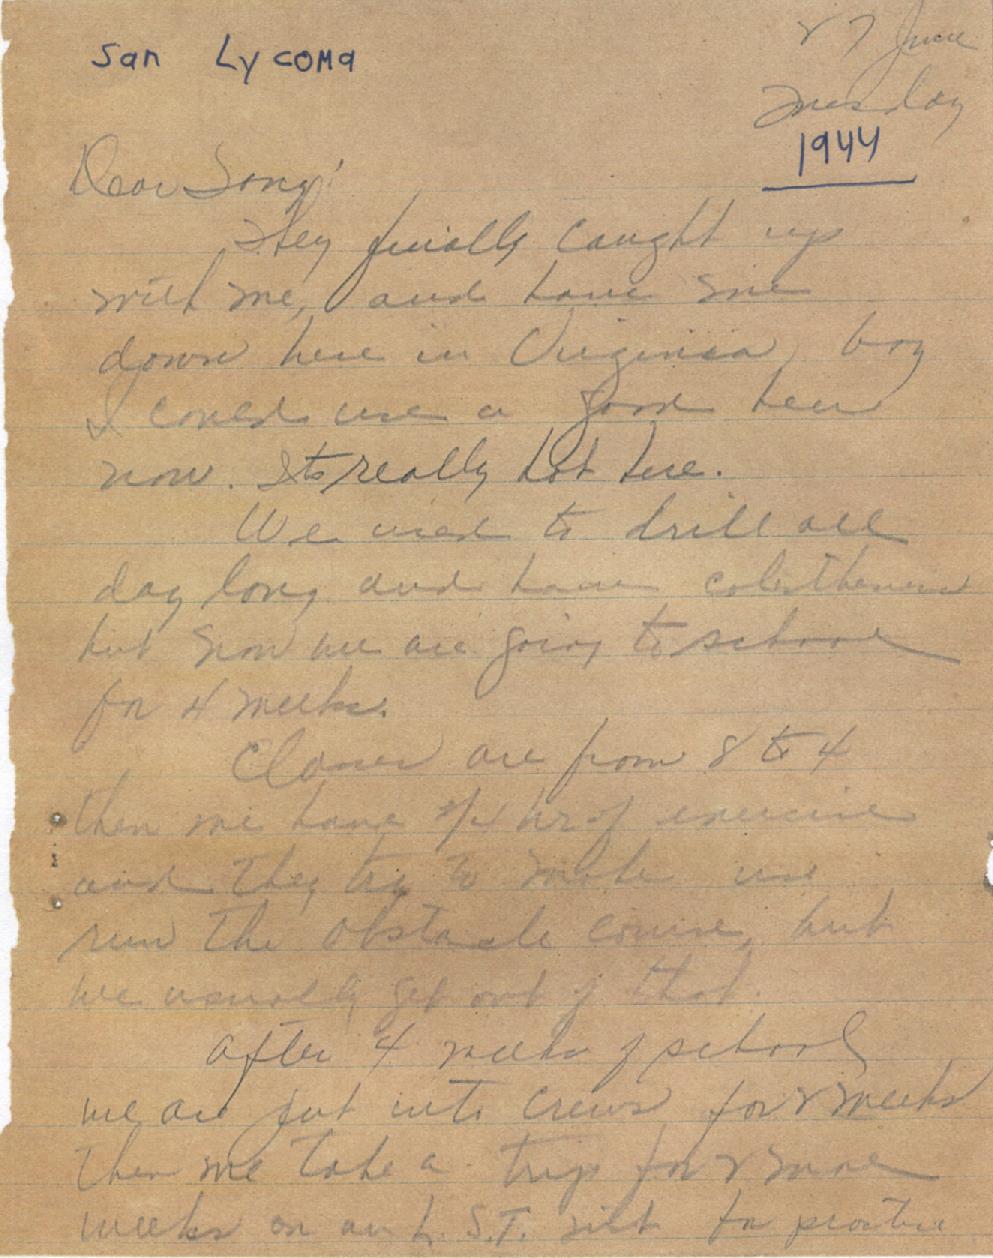 San Lycoma
27 June
Tuesday
1944
Dear Sony!
They finally caught up
with me, and have me
down here in Virginia, boy
I could use a good beer
now. Its really hot here.
We used to drill all
day long and have
but now we are going to school
for 4 weeks.
Classes are from 8 to 4
then we have hr of exercise
and they try to make us
run the obstacle course, but
we usually get out of that.
After 4 weeks of school
we are put into crews for 2 weeks
then we take a trip for 2 more
weeks on an L.S.T. for practice